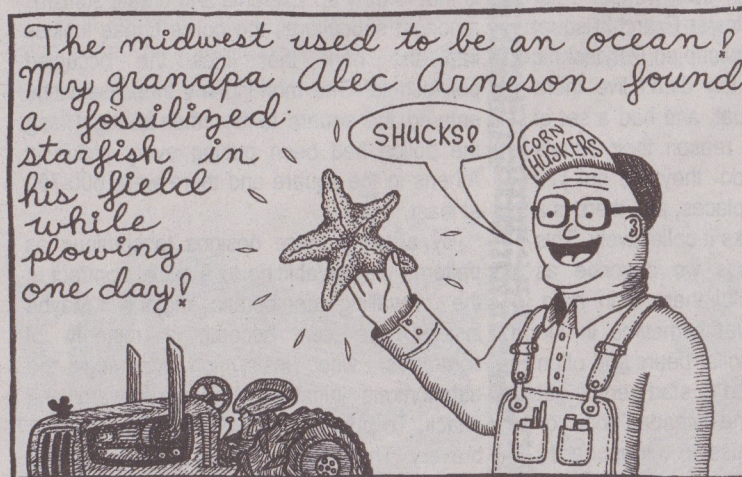 The midwest used to be an ocean!
My grandpa Alec Arneson found
a fossilized
starfish in
his field
while
plowing
one day!
SHUCKS!
CORN
HUSKERS